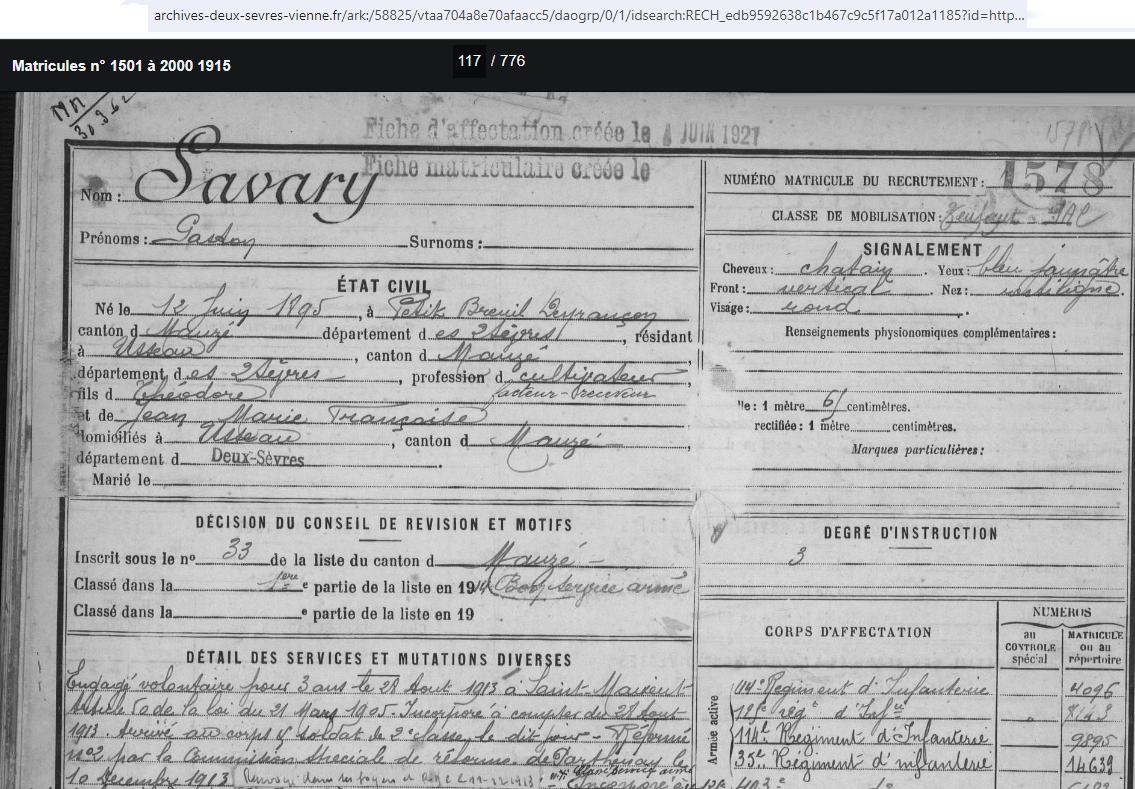 archives-deux-sevres-vienne.fr/ark:/58825/vtaa704a8e70afaacc5/daogrp/0/1/idsearch:RECH_edb9592638c1b467c9c5f17a012a1185?id=http...
Matricules n° 1501 à 2000 1915
117 / 776
Fiche d'affectation créée le JUIN 1921
Fiche matriculaire créée le
Nom : Savary
Prénoms : Gaston Surnoms :
NUMÉRO MATRICULE DU RECRUTEMENT : 1578
CLASSE DE MOBILISATION :
ÉTAT CIVIL
Né le 12 Juin 1895, à Petit Breuil Deyrançon
canton d Mauzé département d es 2 Sèvres, résidant
à Usseau, canton d Mauzé
département d es 2 Sèvres, profession d cultivateur
facteur-receveur
fils d Théodore
et de Jean Marie Françoise
domiciliés à Usseau, canton d Mauzé
département d Deux-Sèvres.
Marié le
SIGNALEMENT
Cheveux : chatain. Yeux : bleu
Front : vertical. Nez : rectiligne.
Visage : rond.
Renseignements physionomiques complémentaires :
le : 1 mètre 61 centimètres.
rectifiée : 1 mètre centimètres.
Marques particulières :
DÉCISION DU CONSEIL DE REVISION ET MOTIFS
Inscrit sous le n° 33 de la liste du canton d Mauzé
Classé dans la 1ere e partie de la liste en 1914 (Bon service armé
Classé dans la e partie de la liste en 19
DEGRÉ D'INSTRUCTION
3
DÉTAIL DES SERVICES ET MUTATIONS DIVERSES
Engagé volontaire pour 3 ans le 28 Aout 1913 à Saint-Maixent
Article de la loi du 21 Mars 1905. Incorporé à compter du 28 Aout
1913. Arrivé au corps & soldat de 2e classe le dit jour - Réformé
n°2 par la Commission Spéciale de réforme de Parthenay le
10 Décembre 1913
CORPS D'AFFECTATION
NUMEROS
au CONTROLE spécial
MATRICULE ou au répertoire
Armée active
114e Régiment d'Infanterie 4096
125e rég d'Inf
114e Régiment d'Infanterie 9895
35e Régiment d'infanterie 14639